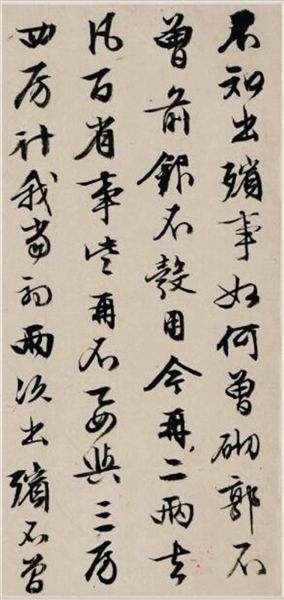 不知出殯事如何曾砌郭不
曾前銀不彀用今再二兩去
凡百省事些再不要與三房
四房計我當初兩次出殯不曾